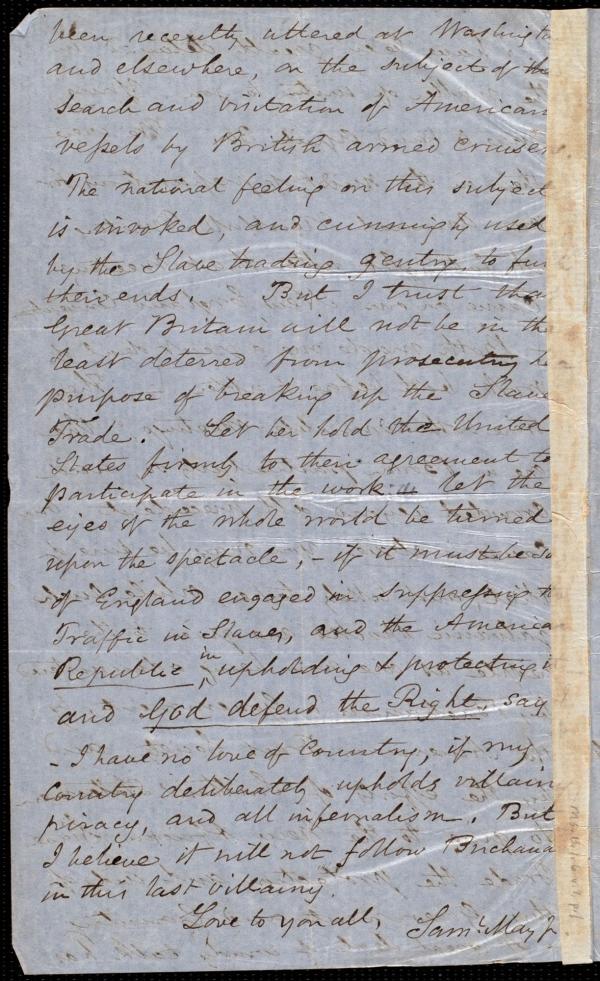 been recently uttered at Washingt
and elsewhere, on the subject of the
search and visitation of American
vessels by British armed cruisers
The national feeling on this subject
is invoked, and cunningly used
by the Slave trading gentry, to fur
their ends. But I trust tha
Great Britain will not be in the
least deterred from prosecuting h
purpose of breaking up the Slave
Trade. Let her hold the United
States firmly to their agreement to
participate in the work & let the
eyes of the whole world be turned
upon the spectacle, - if it must be so
of England engaged in suppressing t
Traffic in Slaves, and the America
Republic in upholding & protecting i
and God defend the Right, say
- I have no love of Country, if my
Country deliberately upholds villain
piracy, and all infernalism. But
I believe it will not follow Buchana
in this last villainy.
Love to you all, Saml. May Jr